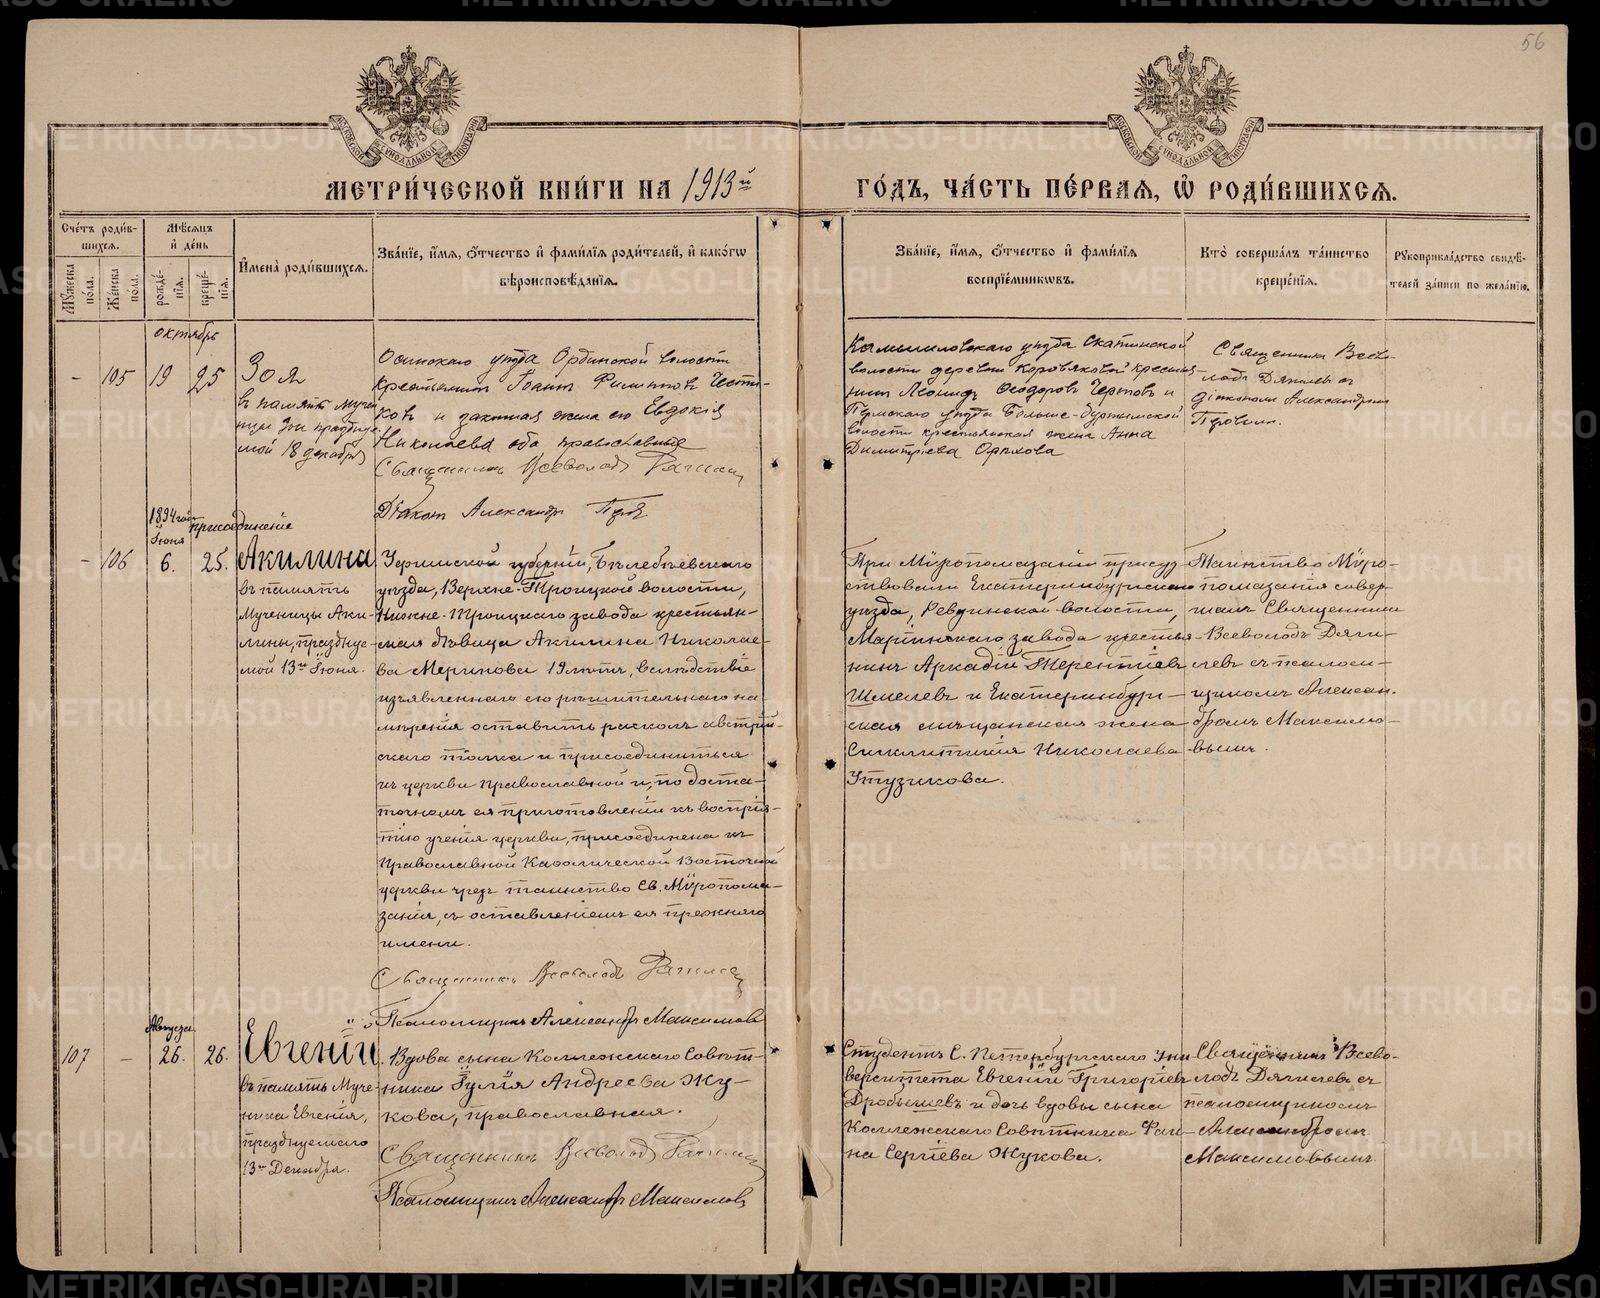 56
МЕТРИ́ЧЕСКОЙ КНИ́ГИ НА 1913й
ГО́ДЪ, ЧА́СТЬ ПЕ́РВАЯ, Ѽ РОДИ́ВШИХСЯ.
Сче́тъ роди́в-
шихся.
Мꙋ́жеска по́ла.
Же́нска по́ла.
Мѣ́сяцъ и҆ де́нь
рожде́-нїя.
креще́-нїя.
И҆мена̀ роди́вшихся.
Зва́нїе, и҆́мя, ѻ҆́тчество и҆ фами́лїя роди́телей, и҆ како́гѡ
вѣроисповѣ́данїя.
Зва́нїе, и҆́мя, ѻ҆́тчество и҆ фами́лїя
воспрїе́мникѡвъ.
Кто̀ соверша́лъ та́инство
креще́нїя.
Рꙋкоприкла́дство свидѣ́-
телей за́писи по жела́нїю.
октябрь
- 105 19 25
Зоя
въ память муче
ницы Зои праздуе
мой 18 декабря
Осинскаго уѣзда Ординской волости
крестьянинъ Іоаннъ Филипповъ
и законная жена его Евдокія
Николаева оба православные
Священникъ Всеволодъ
Діаконъ Александръ
Камышловскаго уѣзда Скатинской
волости деревни Коровяковой крестья
нинъ Леонидъ Ѳеодоровъ Чертовъ и
Пермскаго уѣзда Больше-Буртымской
волости крестьянская жена Анна
Димитріева Орѣхова
Священникъ Всево-
лодъ Дягилевъ съ
діакономъ Александромъ
1894 года
Іюня
присоединеніе
- 106 6. 25.
Акилина
въ память
Мученицы Аки-
лины, празднуе-
мой 13го Іюня.
Уфимской губерніи, Бѣлебѣевскаго
уѣзда, Верхне-Троицкой волости,
Нижне-Троицкаго завода крестьян-
ская дѣвица Акилина Николае-
ва Меринова 19 лѣтъ, вслѣдствіе
изъявленнаго ею рѣшительнаго на-
мѣренія оставить расколъ австрій-
скаго толка и присоединиться
къ церкви православной и, по доста-
точномъ ея приготовленіи къ воспрія-
тію ученія церкви, присоединена къ
Православной Каѳолической Восточной
церкви чрезъ таинство Св. Мѵропома-
занія, съ оставленіемъ ея прежняго
имени.
Священникъ Всеволодъ
Псаломщикъ Александръ Максимовъ
При Мѵропомазаніи присут
ствовали Екатеринбургскаго
уѣзда, Ревдинской волости,
Маріинскаго завода крестья-
нинъ Аркадій Терентіевъ
Шмелевъ и Екатеринбург-
ская мѣщанская жена
Синклитикія Николаева
Утузикова.
Таинство Мѵро-
помазанія совер-
шалъ Священникъ
Всеволодъ Дяги-
левъ съ псалом-
щикомъ Алексан-
дромъ Максимо-
вымъ.
Августа
107 - 26. 26.
Евгеній
въ память Муче-
ника Евгенія,
празднуемаго
13го Декабря.
Вдова сына Коллежскаго Совѣт-
ника Іулія Андреева Жу-
кова, православная.
Священникъ Всеволодъ
Псаломщикъ Александръ Максимовъ
Студентъ С. Петербургскаго Уни
верситета Евгеній Григоріевъ
Дробышевъ и дочь вдовы сына
Коллежскаго Совѣтника Фаи-
на Сергіева Жукова.
Священникъ Всево-
лодъ Дягилевъ съ
псаломщикомъ
Александромъ
Максимовымъ